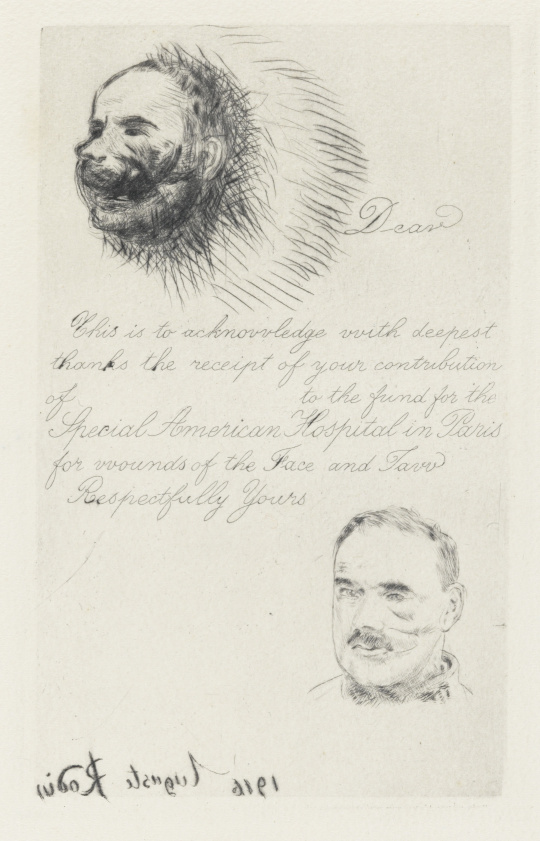 Dear
This is to acknovvledge vvith deepest
thanks the receipt of your contribution
of to the fund for the
Special American Hospital in Paris
for vvounds of the Face and Javv
Respectfully Yours
1916 Auguste Rodin